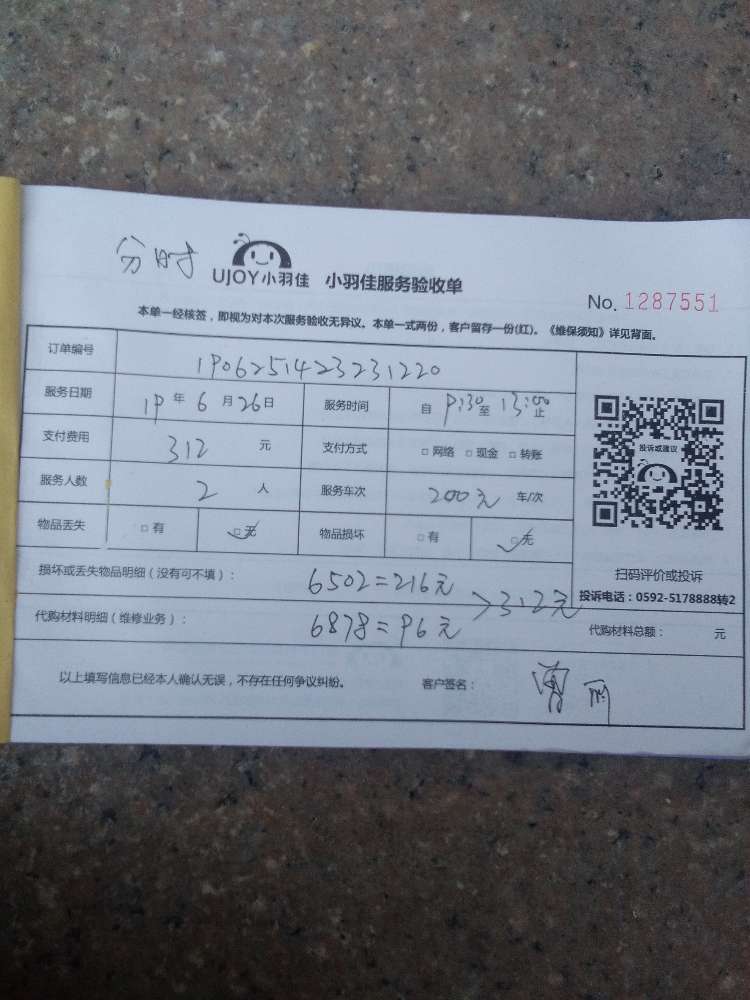 分时 UJOY小羽佳 小羽佳服务验收单
No. 1287551
本单一经核签，即视为对本次服务验收无异议。本单一式两份，客户留存一份(红)。《维保须知》详见背面。
订单编号 1906251423231220
服务日期 19年6月26日 服务时间 自9:30至13:00止
支付费用 312元 支付方式 □网络 □现金 □转账
服务人数 2人 服务车次 200元 车/次
物品丢失 □有 □无 物品损坏 □有 □无
投诉或建议
扫码评价或投诉
投诉电话：0592-5178888转2
损坏或丢失物品明细（没有可不填）： 6502=216元
>312元
代购材料明细（维修业务）： 6878=96元 代购材料总额： 元
以上填写信息已经本人确认无误，不存在任何争议纠纷。 客户签名：